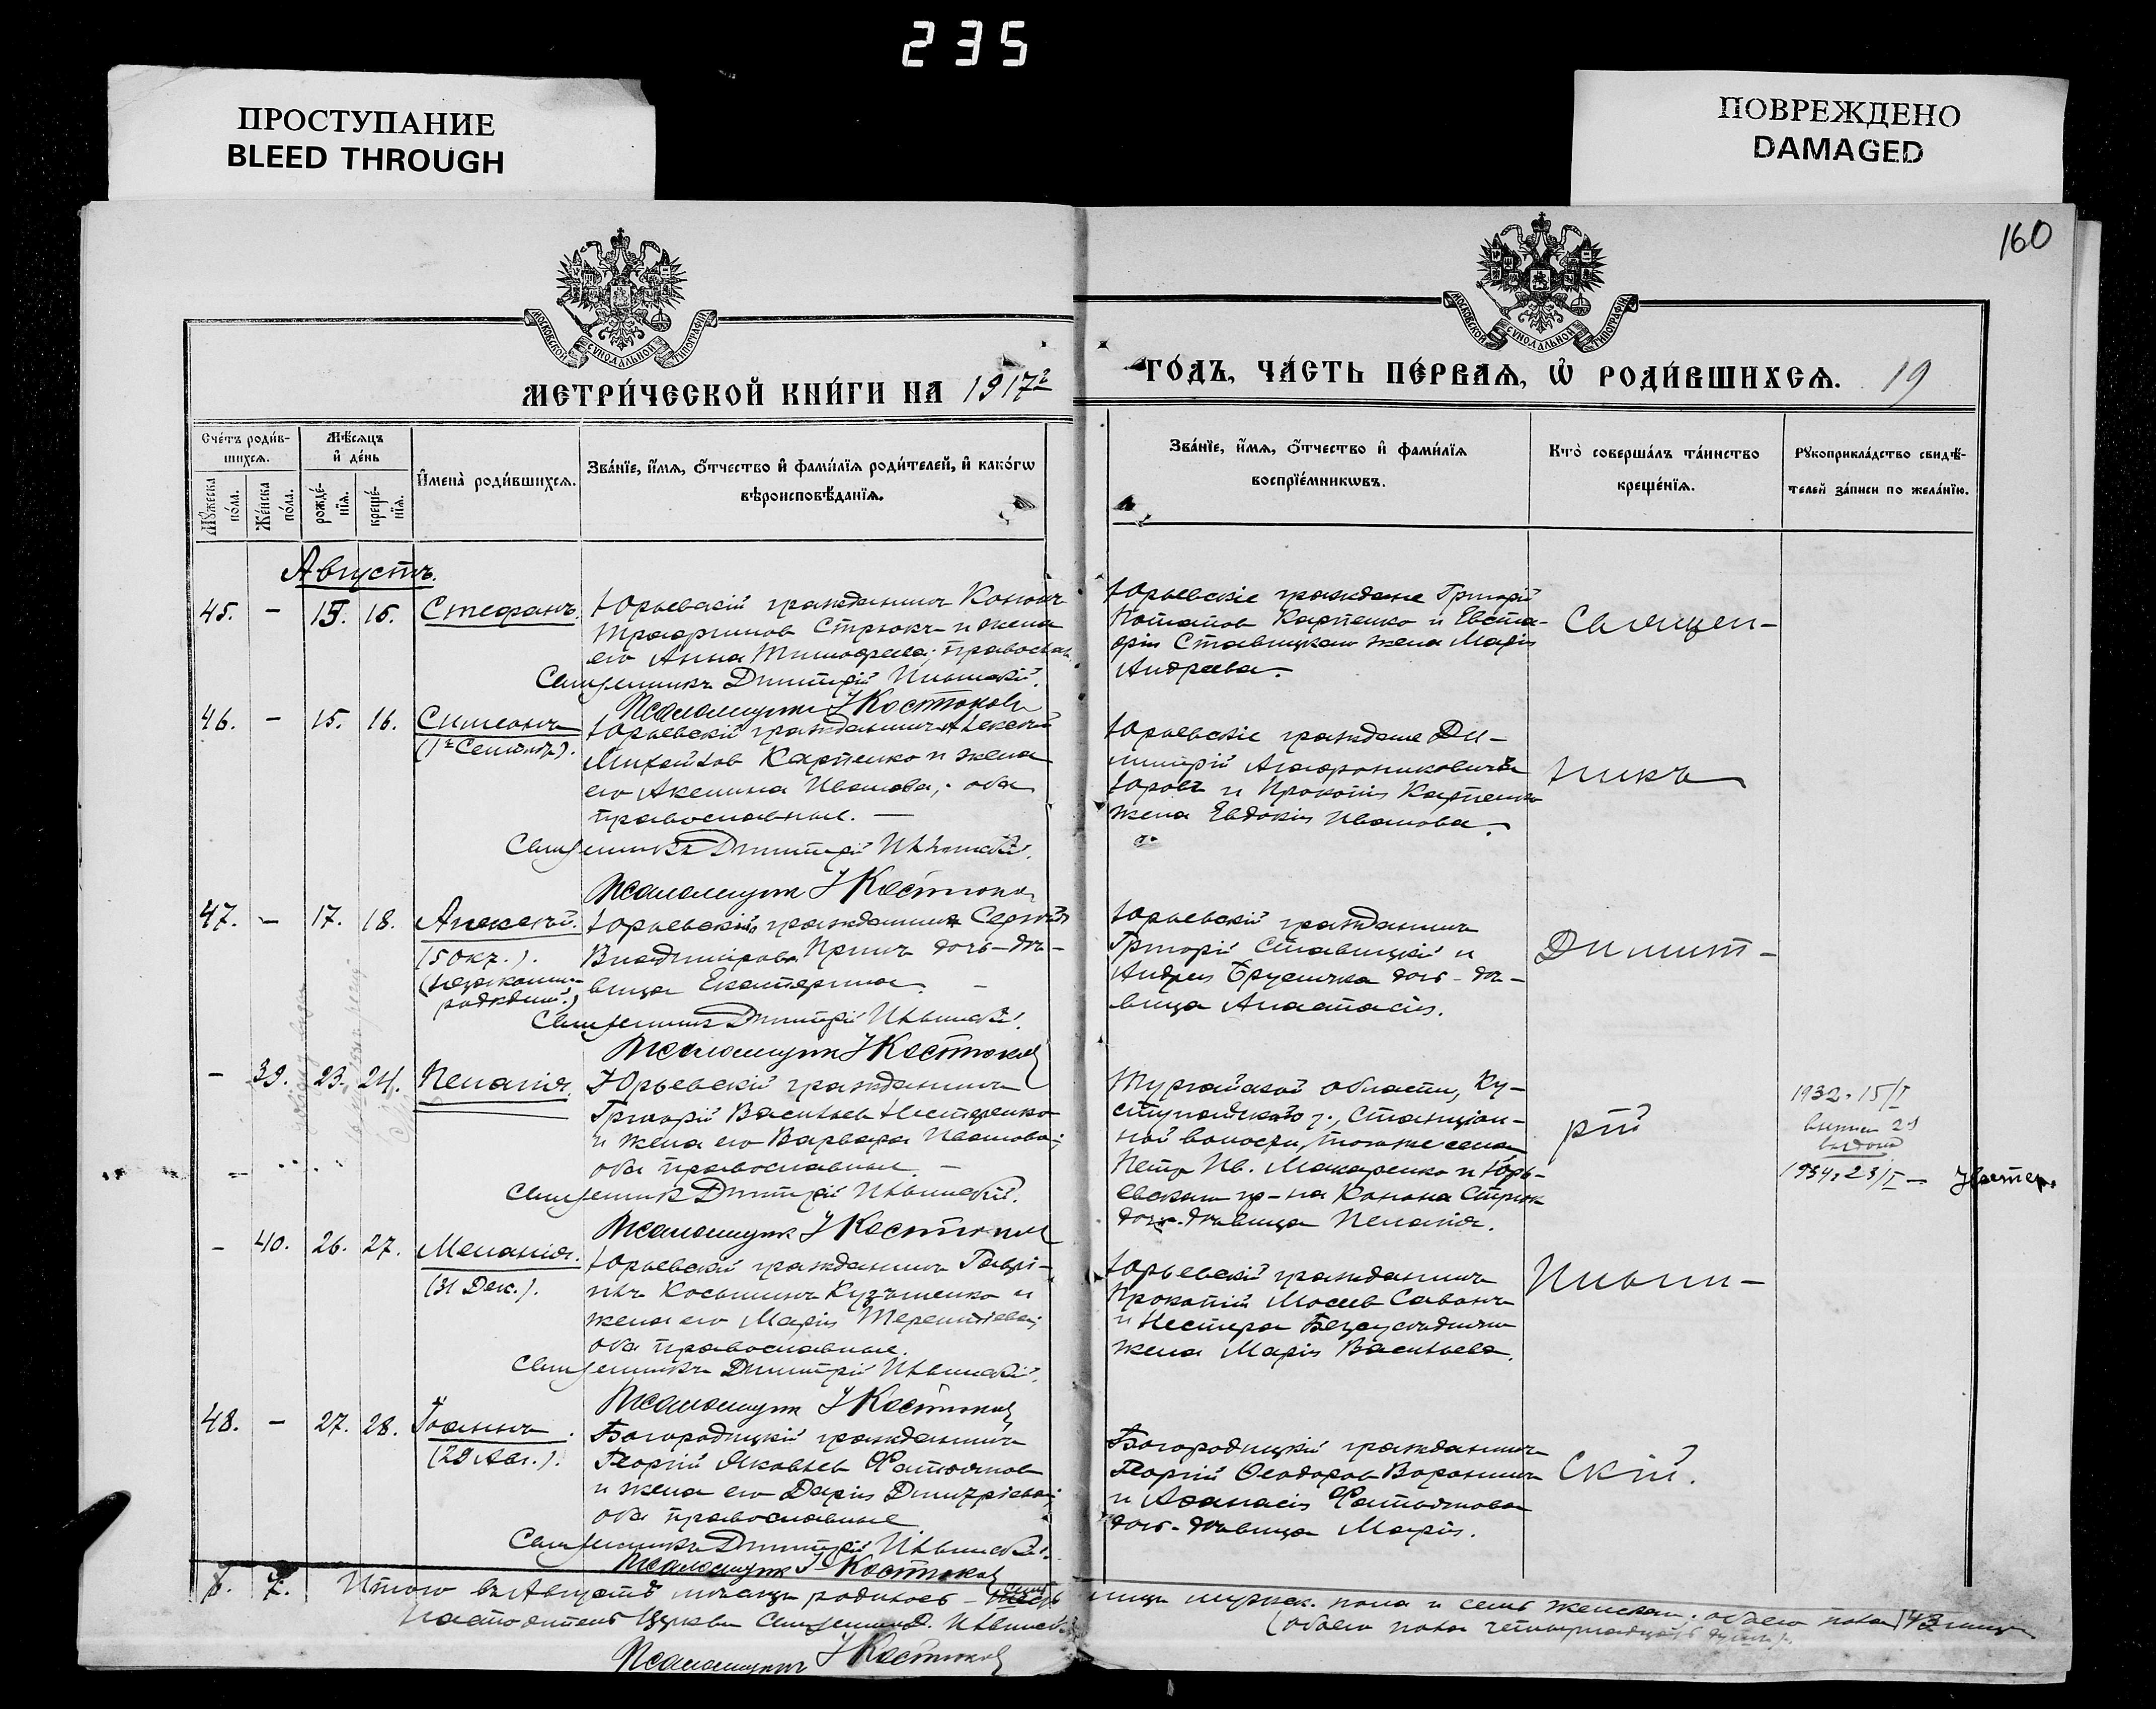 235
ПРОСТУПАНИЕ
BLEED THROUGH
ПОВРЕЖДЕНО
DAMAGED
160
МОСКОВСКОЙ СѴНОДАЛЬНОЙ ТИПОГРАФІИ
МОСКОВСКОЙ СѴНОДАЛЬНОЙ ТИПОГРАФІИ
МЕТРИ́ЧЕСКОЙ КНИ́ГИ НА 1917г
ГО́ДЪ, ЧА́СТЬ ПЕ́РВАЯ, Ѡ҆ РОДИ́ВШИХСЯ. 19
Сче́тъ роди́в-
шихся.
Мѣ́сяцъ
и҆ де́нь
Мꙋ́жеска
по́ла.
Же́нска
по́ла.
рожде́-
нїя.
креще́-
нїя.
И҆мена̀ роди́вшихся.
Зва́нїе, и҆́мя, ѻ҆́тчество и҆ фами́лїя роди́телей, и҆ како́гѡ
вѣроисповѣ́данїя.
Зва́нїе, и҆́мя, ѻ҆́тчество и҆ фами́лїя
воспрїе́мникѡвъ.
Кто̀ соверша́лъ та́инство
креще́нїя.
Рꙋкоприкла́дство свидѣ́-
телей за́писи по жела́нїю.
Августъ.
45. - 15. 15. Стефанъ.
Юрьевскій гражданинъ Кононъ
Трофимовъ Стрюкъ и жена
его Анна Тимофеева; православ
Священникъ Димитрій Ильинскій.
Псаломщикъ І Костюковъ
Юрьевскіе граждане Григорій
Потаповъ Карпенко и Евста-
фія Ставицкаго жена Марія
Андреева.
Священ-
46. - 15. 16. Симеонъ
(1го Сентября).
Юрьевскій гражданинъ Алексей
Михайловъ Карпенко и жена
его Акелина Иванова; оба
православные. -
Священникъ Димитрій Ильинскій.
Псаломщикъ І Костюковъ
Юрьевскіе граждане Ди-
митрій
и Прокопія Карпенко
жена Евдокія Иванова.
никъ
47. - 17. 18. Алексей.
(5 окт.).
(незаконно-
рожден.)
Юрьевскій гражданин Сергея
Владимірова дочь-дѣ-
вица Екатерина. -
Священникъ Димитрій Ильинскій.
Псаломщикъ І Костюковъ
Юрьевскій гражданинъ
Григорій Ставицкій и
Андрея дочь-дѣ-
вица Анастасія.
Димит-
- 39. 23. 24. Пелагія.
Юрьевскій гражданинъ
Григорій Васильевъ Нестеренко
и жена его Варвара Иванова;
оба православные -
Священникъ Димитрій Ильинскій.
Псаломщикъ І Костюковъ
Тургайской области, Ку-
станайскаго у., Станціон-
ной волости, того же села
Петръ Ив. Макаренко и Юрь-
евскаго гр-на Конона Стрюк
дочь-дѣвица Пелагія.
рій
1932. 15/I
1934. 23/I -
- 40. 26. 27. Меланія.
(31 Дек.).
Юрьевскій гражданинъ Гаврі-
илъ Косьминъ Кузьменко и
жена его Марія Терентіева;
оба православные.
Священникъ Димитрій Ильинскій.
Псаломщикъ І Костюковъ
Юрьевскій гражданинъ
Прокопій Моисеев
и Нестера
жена Марія Васильева.
Ильин-
48. - 27. 28. Іоаннъ
(29 Авг.).
Богородицкій гражданинъ
Георгій Яковлев
и жена его Дарія Дмитріева;
оба православные
Священникъ Димитрій Ильинскій.
Псаломщикъ І Костюковъ
Богородицкій гражданинъ
Георгій Феодоров Воронинъ
и Афанасія
дочь-дѣвица Марія.
скій.
7. Итого въ Августѣ месяце родилось -
лицъ мужск. пола и семь женскаго; обоего пола
(обоего пола четырнадцать душъ).
Настоятель Церкви Священникъ Д. Ильинскій
Псаломщикъ І Костюковъ